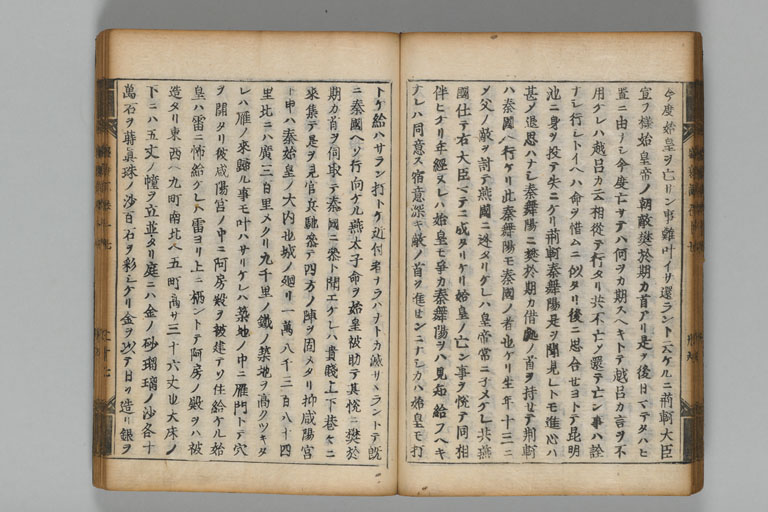 今度始皇ヲ亡サン事難叶イサ還ラントテ云ケルニ荊軻大臣
宣フ様始皇帝ノ朝敵樊於期カ首アリ是ヲ後日マテタハヒ
置ニ由ナシ今度亡サテハ何ヲカ期スヘキトテ越呂カ言ヲ不
用ケレハ越呂カ云相従テ行タリ共不亡ノ還テ亡ン事ハ詮
ナシ行レトイヘハ命ヲ惜ムニ似タリ後ニ思合セヨトテ昆明
池ニ身ヲ投テ失ニケリ荊軻秦舞陽是ヲ聞見レトモ進心ハ
甚ノ退思ハナシ秦舞陽ニ樊於期カ借処ノ首ヲ持セテ荊軻
ハ秦國ヘ行ケリ此秦舞陽モ秦國ノ者也ケリ生年十三ニ
ノ父ノ敵ヲ討テ燕國ニ迯タリケレハ皇帝常ニ召メケレ共燕
國仕テ右大臣マテニ成タリケリ始皇ノ亡ン事ヲ悦テ同相
伴ヒケリ年經ヌレハ始皇モ争カ秦舞陽ヲハ見知給フヘキ
ナレハ同意ス宿意深キ敵ノ首ヲ進センニナシカハ始皇モ打
トケ給ハサラン打トケ近付者ナラハナトカ滅サヽラントテ既
ニ秦國ヘソ行向ケル燕太子命ヲ始皇被助テ其悦ニ樊於
期カ首ヲ伺取テ秦國ニ参ト聞エケレハ貴賤上下巷々ニ
來集テ是ヲ見官兵馳参テ四方ノ陣ヲ固メタリ抑咸陽宮
ト申ハ秦始皇ノ大内也城ノ廻リ一萬八千三百八十四
里北ニハ廣三百里メクリ九千里ノ鐵ノ築地ヲ高クツキタ
レハ雁ノ来歸ル事モ叶ハサリケレハ築地ノ中ニ雁門トテ穴
ヲ開タリ彼咸陽宮ノ中ニ阿房殿ヲ被建テソ住給ケル始
皇ハ雷ニ怖給ケレハ雷ヨリ上ニ栖ントテ阿房ノ殿ヲハ被
造タリ東西ヘ九町南北ヘ五町高サ三十六丈也大床ノ
下ニハ五丈ノ幢ヲ立並タリ庭ニハ金ノ砂瑠璃ノ沙各十
萬石ヲ蒔眞珠ノ沙百石ヲ彩シケリ金ヲ以テ日ヲ造リ銀ヲ